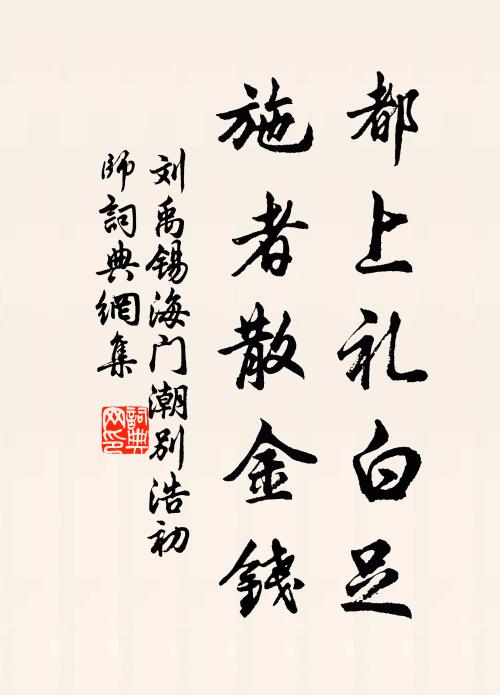 都上礼白足
施者散金錢
刘禹锡海门潮别浩初
師詞典網集
詞典
网印